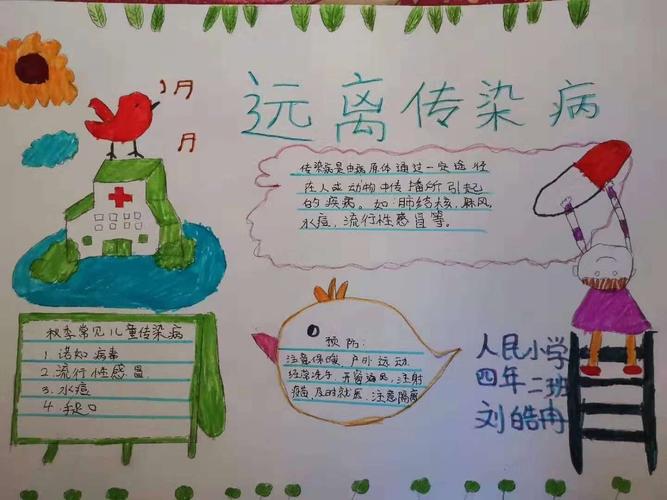 远离传染病
传染病是由病原体通过一定途径
在人或动物中传播所引起
的疾病。如:肺结核、麻风
水痘、流行性感冒等。
秋季常见儿童传染病
1 诺如病毒
2.流行性感冒
3.水痘
4.手足口
预防:
注意保暖,户外运动
经常洗手,开窗通风,注射
疫苗,及时就医,注意隔离
人民小学
四年二班
刘皓冉